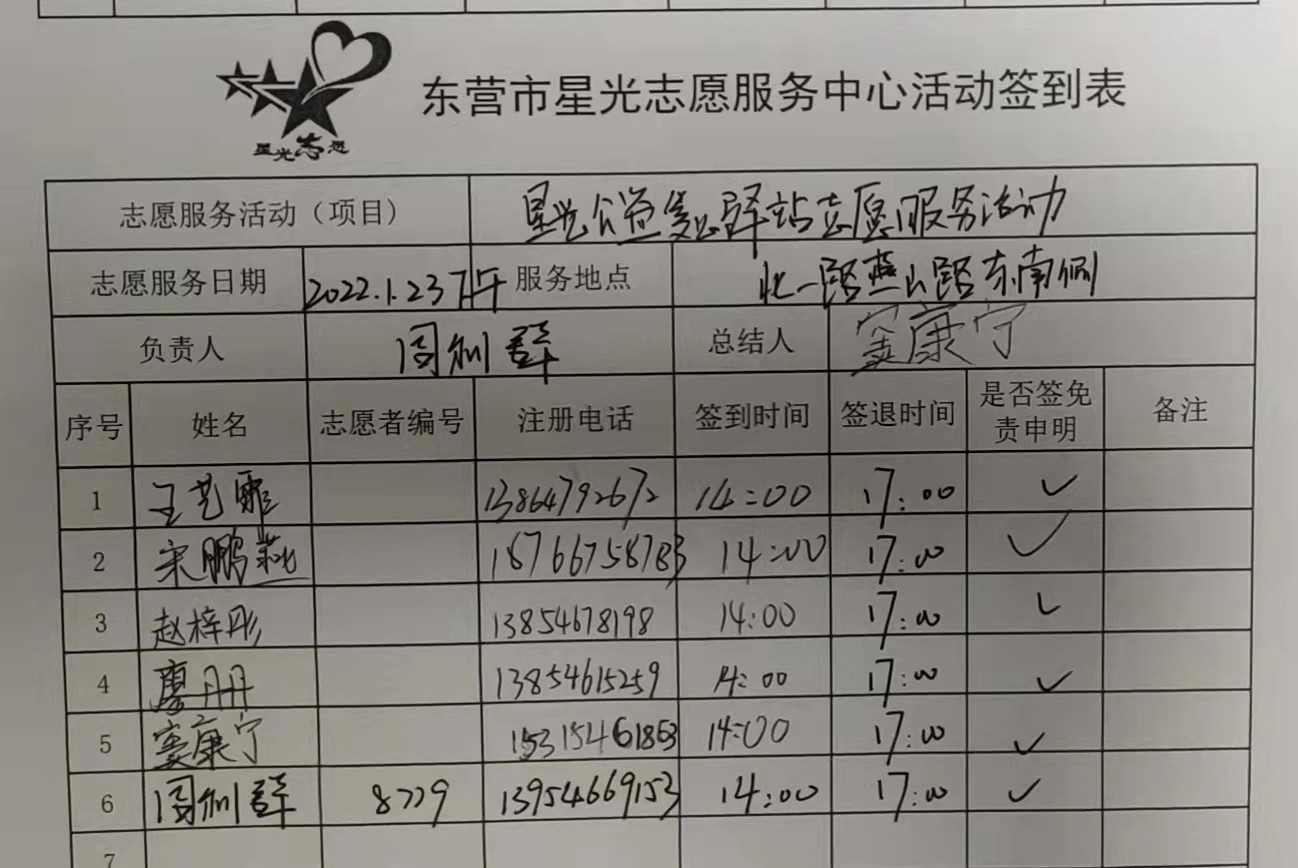 星光志愿
东营市星光志愿服务中心活动签到表
志愿服务活动（项目） 星光公益爱心驿站志愿服务活动
志愿服务日期 2022.1.23下午 服务地点 北一路燕山路东南侧
负责人 周洲群 总结人 窦康宁
序号 姓名 志愿者编号 注册电话 签到时间 签退时间 是否签免责申明 备注
1 王艺霏 13864792672 14:00 17:00 ✓
2 宋鹏燕 18766758783 14:00 17:00 ✓
3 赵梓彤 13854678198 14:00 17:00 ✓
4 廖丹丹 13854615259 14:00 17:00 ✓
5 窦康宁 15315461863 14:00 17:00 ✓
6 周洲群 8779 13954669153 14:00 17:00 ✓
7